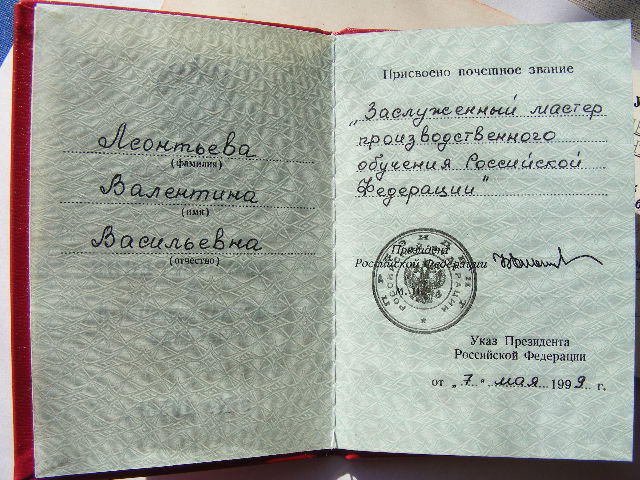 Леонтьева
(фамилия)
Валентина
(имя)
Васильевна
(отчество)
Присвоено почетное звание
„Заслуженный мастер
производственного
обучения Российской
Федерации"
Президент
Российской Федерации
М.
Указ Президента
Российской Федерации
от „7" мая 1999 г.